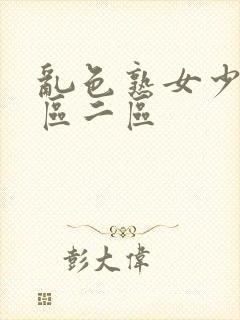 亂色熟女少
區二區
彭大偉